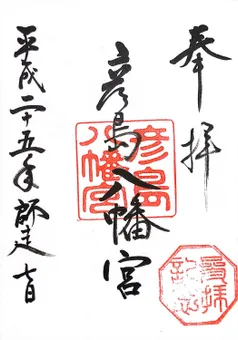 奉拝
彦島八幡宮
彦島
八幡宮
参拝
記念
平成二十五年師走七日